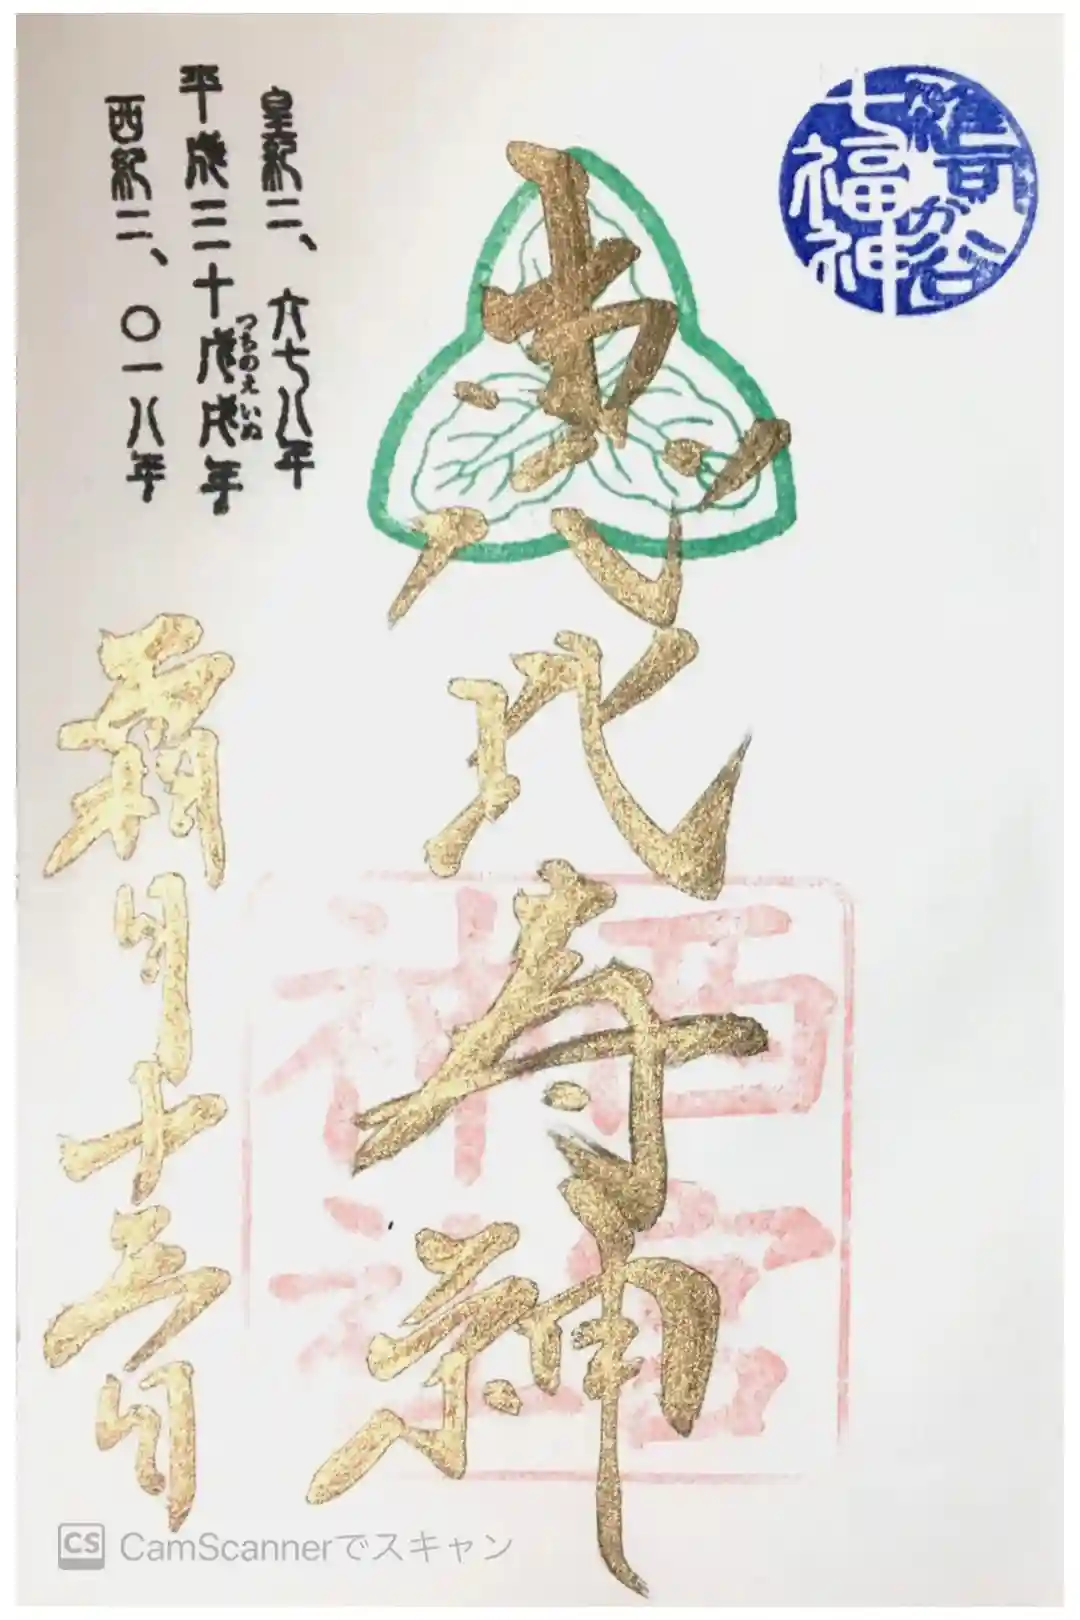 雑司が谷
七福神
恵比寿神
西宮
神社
皇紀二、六七八年
平成三十戊戌年
つちのえいぬ
西紀二、〇一八年
霜月十 日
CS CamScannerでスキャン